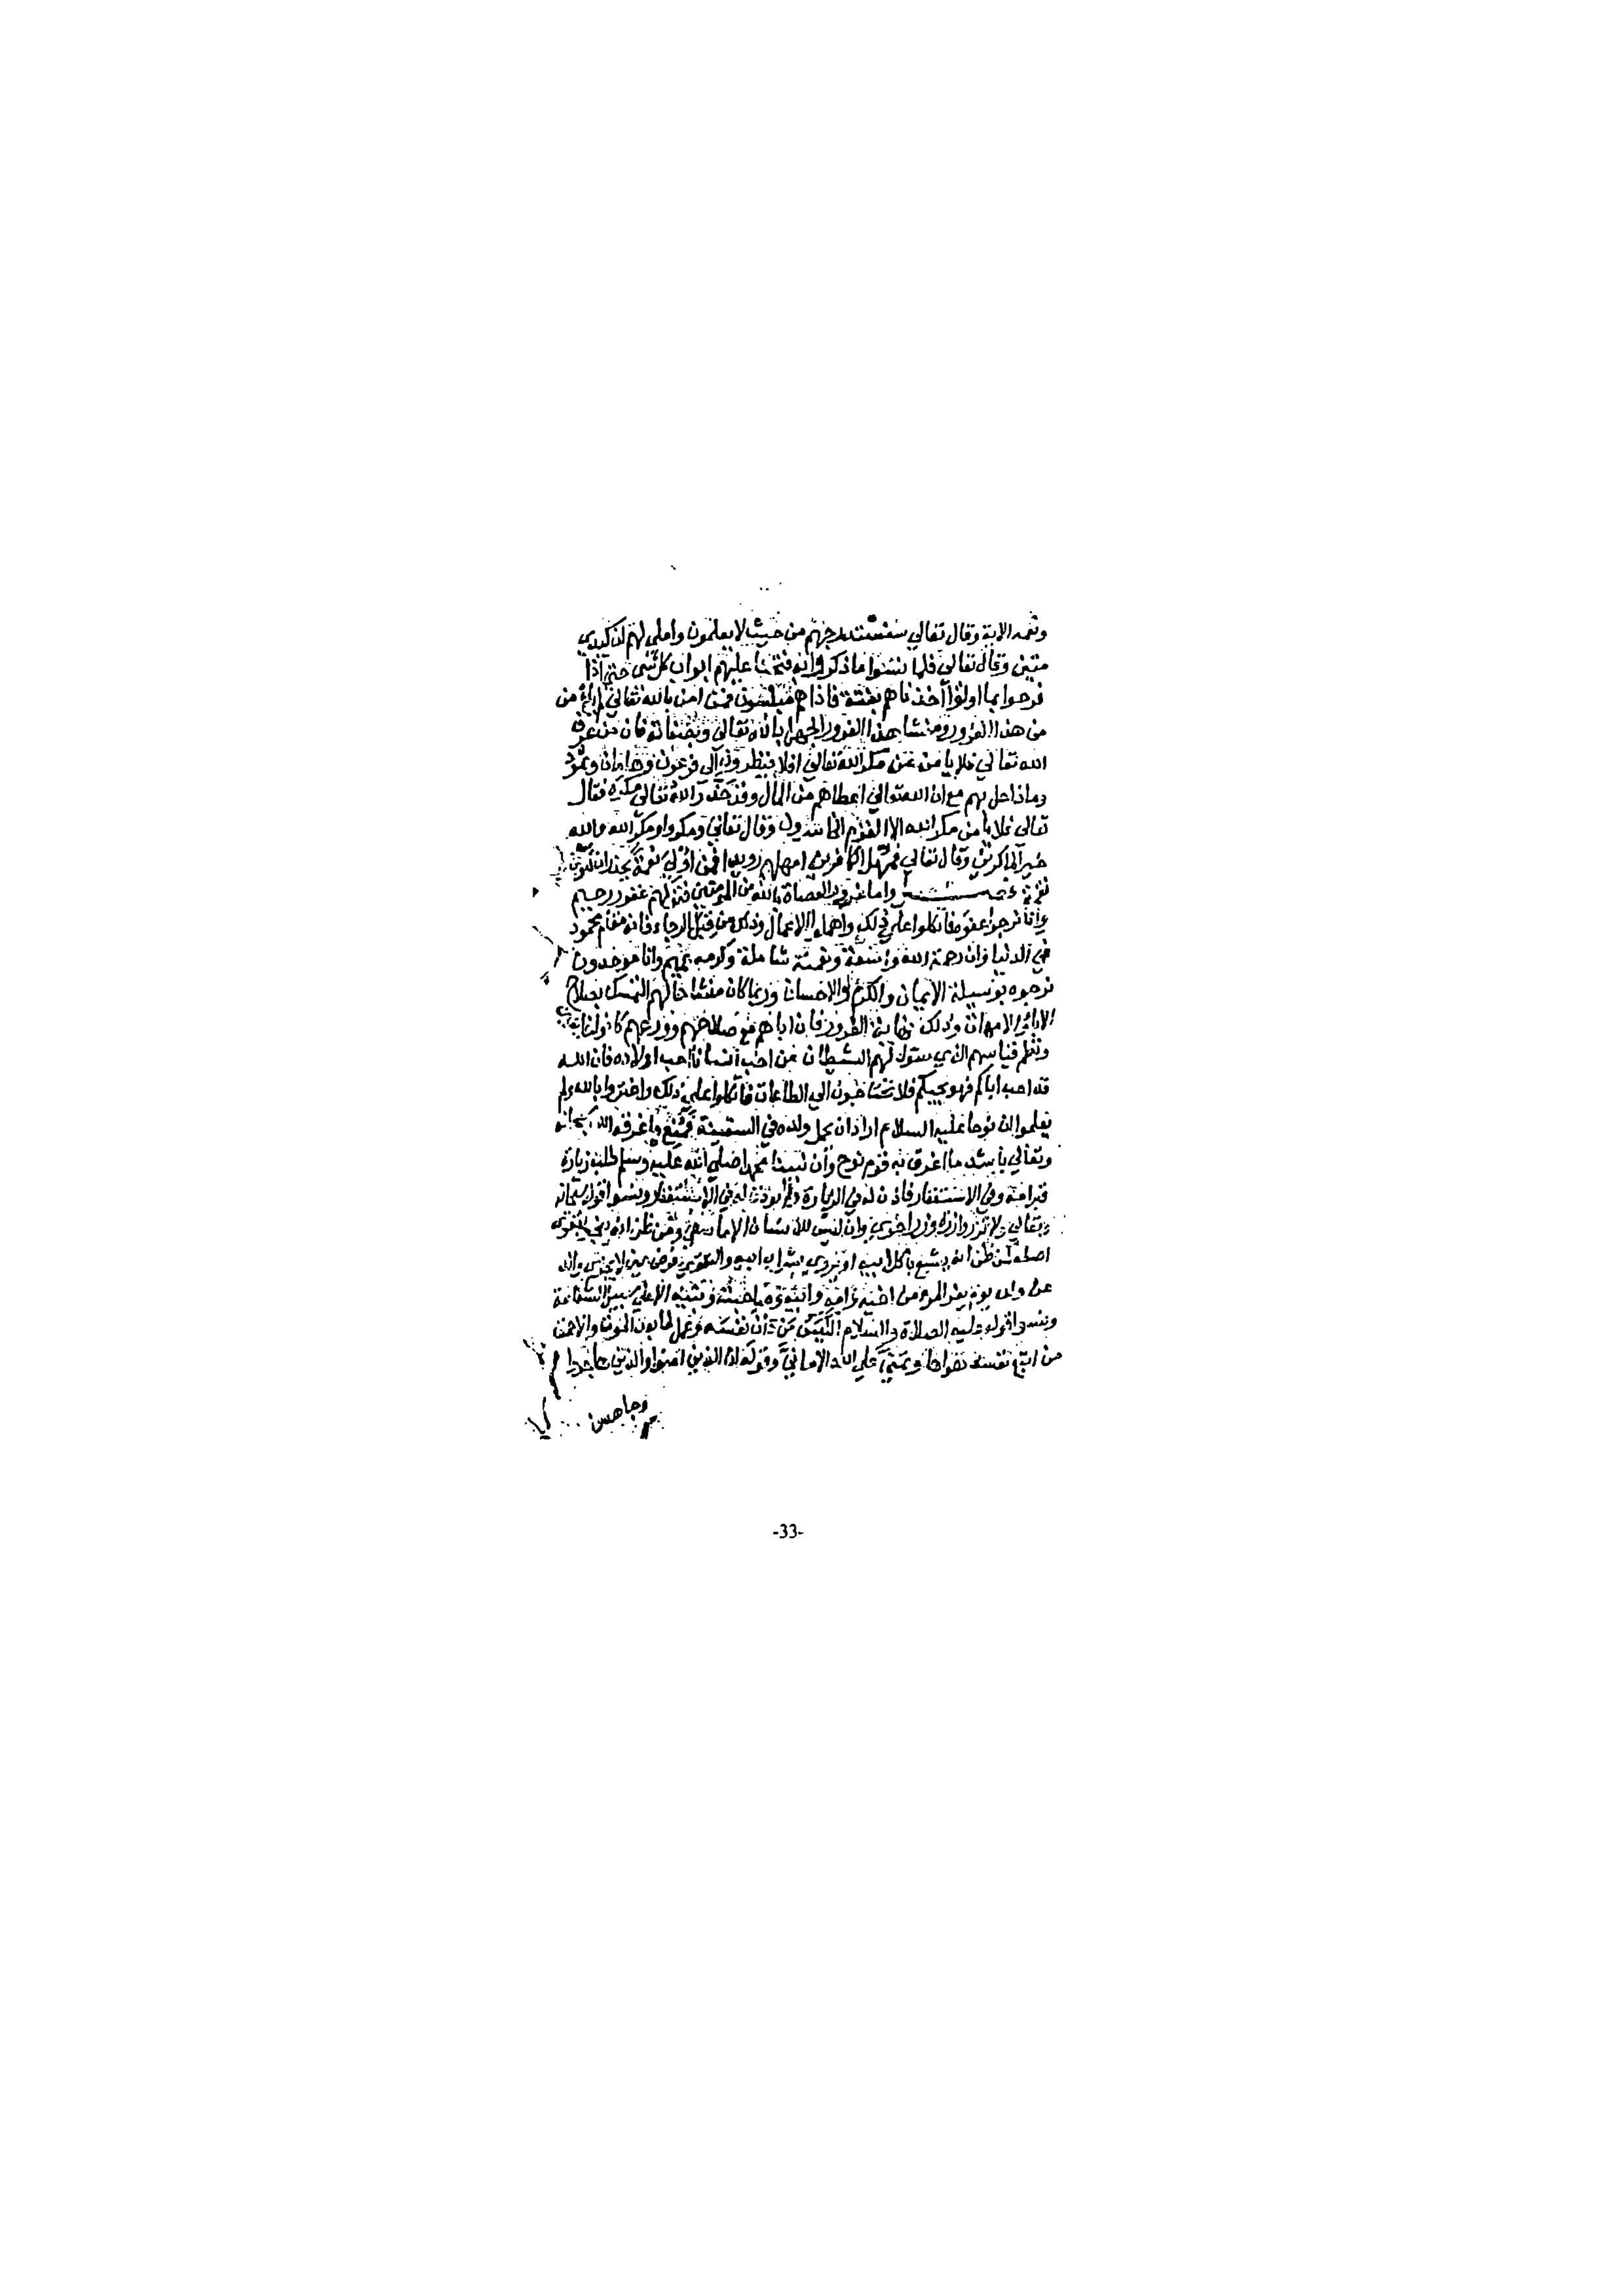 ونعمه الاية وقال تعالي سنستدرجهم من حيث لا يعلمون واملي لهم ان كيدي
متين وقال تعالى فلما نسوا ما ذكروا به فتحنا عليهم ابواب كل شي حتى اذا
فرحوا بما اوتوا اخذناهم بغتة فاذا هم مبلسون فمن امن بالله تعالى من
من هذا الغرور ومنشا هذا الغرور الجهل بالله تعالى وبصفاته فان من عرف
الله تعالي فلا يامن من مكر الله تعالى افلا ينظرون الى فرعون وهامان وثمود
وماذا حل بهم مع ان الله تعالى اعطاهم من المال وقد حذر الله تعالى مكره فقال
تعالى فلا يامن مكر الله الا القوم الخاسرون وقال تعالى ومكروا ومكر الله والله
خير الماكرين وقال تعالي فمهل الكافرين امهلهم رويدا فمن اولي نعمة يحذر ان تكون
نقمة واما غرور العصاة بالله من المومنين فقولهم غفور رحيم
وانا نرجو عفوه فاتكلوا على ذلك واهملوا الاعمال وذلك من قبل الرجاء فانه مقام محمود
في الدنيا وان رحمة الله واسعة ونعمته شاملة وكرمه عميم وانا موحدون
نرجوه بوسيلة الايمان والكرم والاحسان وربما كان منشا حالهم التمسك بصلاح
الاباء والامهات وذلك نهاية الغرور فان اباهم مع صلاحهم وورعهم كانوا خايفين
ونظم قياسهم الذي سول لهم الشيطان من احب انسانا احب اولاده فان الله
قد احب اباكم فهو يحبكم فلا تحتاجون الي الطاعات فاتكلوا على ذلك واغتروا بالله ولم
يعلموا ان نوحا عليه السلام اراد ان يحمل ولده في السفينة فمنع واغرقه الله سبحانه
وتعالي باشد ما اغرق به قوم نوح وان نبينا محمدا صلى الله عليه وسلم طلب زيارة
قبر امه وفي الاستغفار فاذن له في الزيارة ولم يوذن له في الاستغفار ونسوا قوله سبحانه
وتعالي ولا تزر وازرة وزر اخرى وان ليس للانسان الا ما سعى ومن ظن انه ينجو بتقوى
اصله كمن ظن انه يشبع باكل ابيه او يروي بشراب ابيه والتقوى فرض عين لا يجزى والد
عن ولد يوم يفر المرء من اخيه وامه وابيه وصاحبته وبنيه الا على سبيل الشفاعة
ونسوا قوله عليه الصلاة والسلام الكيس من دان نفسه وعمل لما بعد الموت والاحمق
من اتبع نفسه هواها وتمنى على الله الاماني وقوله ان الذين امنوا والذين هاجروا
وجاهدوا
-33-